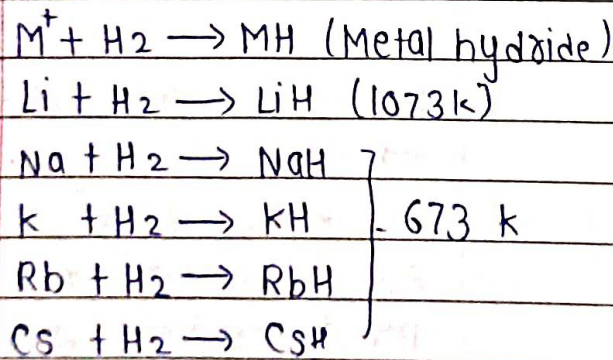 M⁺ + H2 → MH (Metal hydride)
Li + H2 → LiH (1073k)
Na + H2 → NaH
k + H2 → kH - 673 k
Rb + H2 → RbH
Cs + H2 → CsH